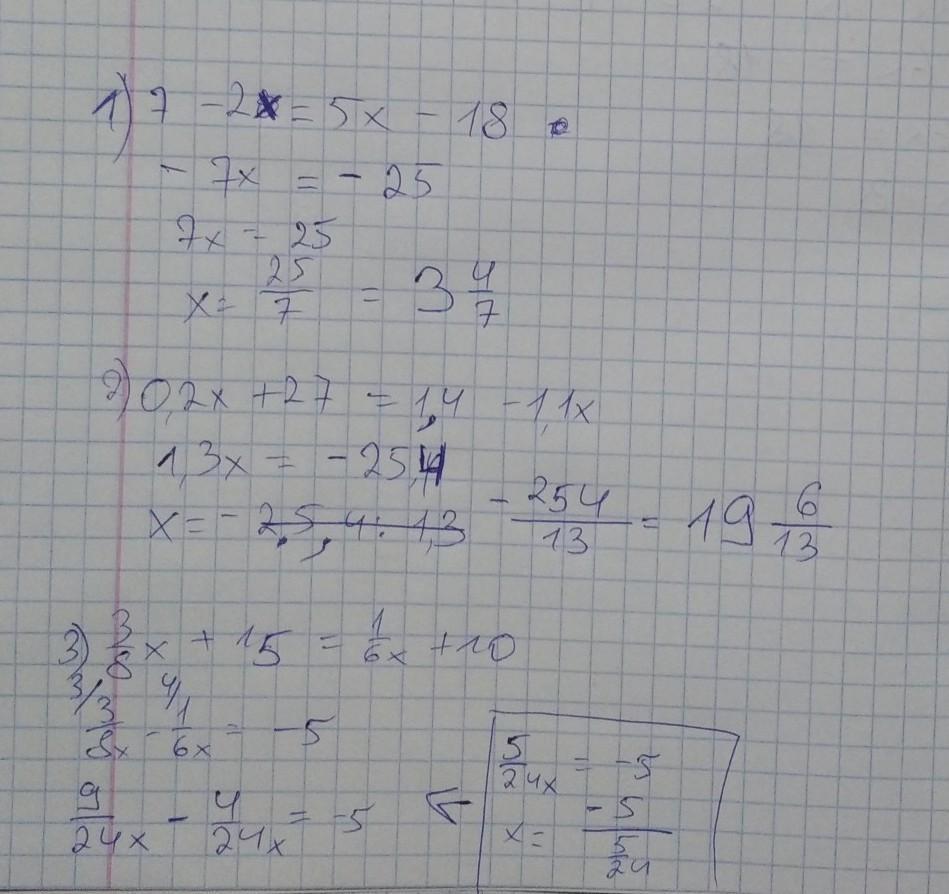 1) 7 - 2x = 5x - 18
- 7x = - 25
7x = 25
x = 25/7 = 3 4/7
2) 0,2x + 27 = 1,4 - 1,1x
1,3x = - 25,4
x = - 25,4 : 1,3 - 254/13 = 19 6/13
3) 3/8 x + 15 = 1/6x + 10
3/ 3/8x - 4/ 1/6x = - 5
9/24x - 4/24x = -5 ←
5/24x = -5
x = -5/(5/24)